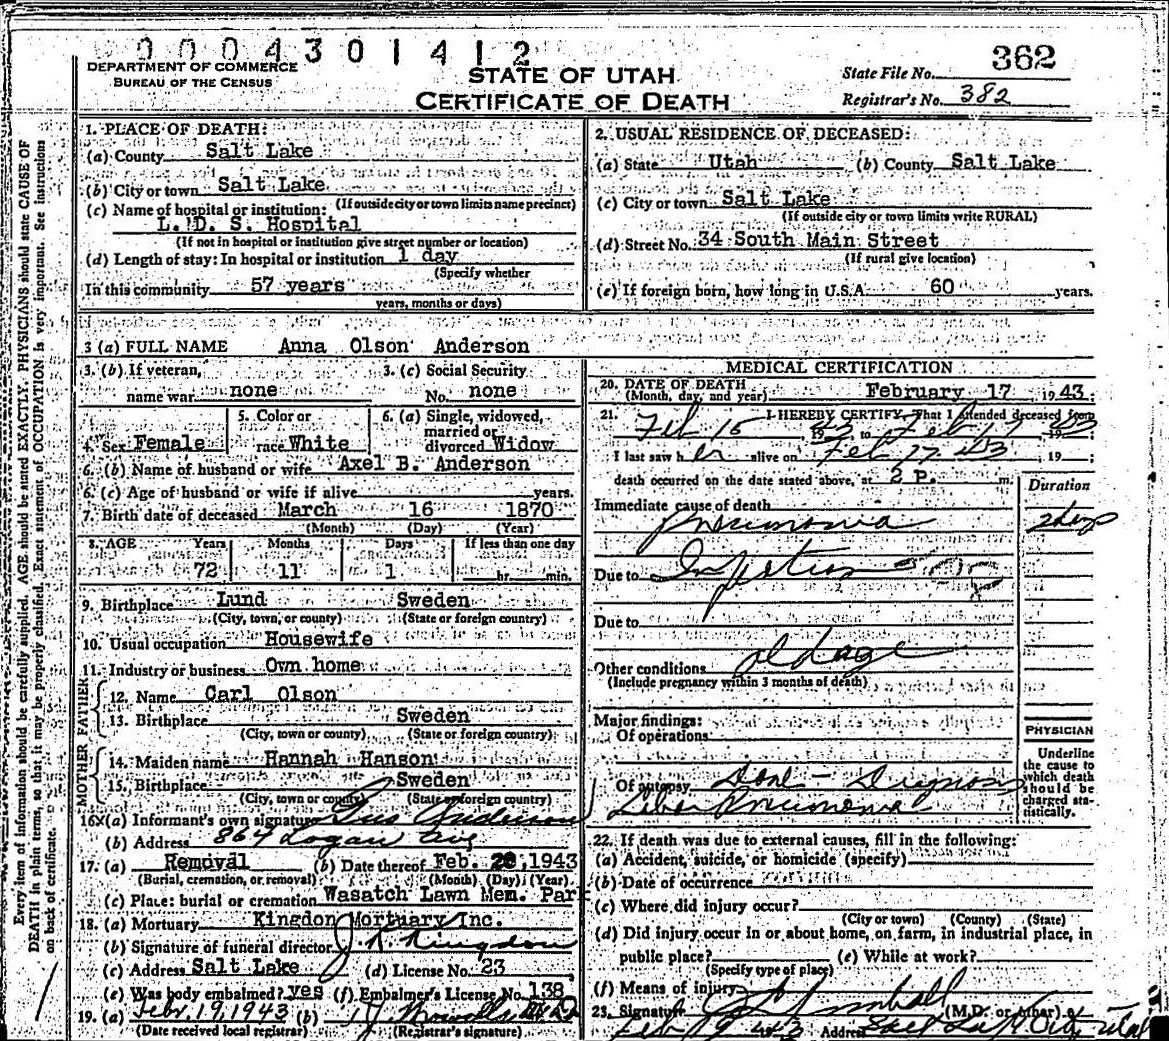 0004301412
362
DEPARTMENT OF COMMERCE
BUREAU OF THE CENSUS
STATE OF UTAH
CERTIFICATE OF DEATH
State File No.
Registrar's No. 382
Every item of information should be carefully supplied. AGE should be stated EXACTLY. PHYSICIANS should state CAUSE OF
DEATH in plain terms, so that it may be properly classified. Exact statement of OCCUPATION is very important. See instructions
on back of certificate.
1. PLACE OF DEATH:
(a) County Salt Lake
(b) City or town Salt Lake
(If outside city or town limits name precinct)
(c) Name of hospital or institution:
L. D. S. Hospital
(If not in hospital or institution give street number or location)
(d) Length of stay: In hospital or institution 1 day
(Specify whether
In this community 57 years
years, months or days)
2. USUAL RESIDENCE OF DECEASED:
(a) State Utah (b) County Salt Lake
(c) City or town Salt Lake
(If outside city or town limits write RURAL)
(d) Street No. 34 South Main Street
(If rural give location)
(e) If foreign born, how long in U.S.A. 60 years.
3 (a) FULL NAME Anna Olson Anderson
3. (b) If veteran, 3. (c) Social Security
name war none No. none
5. Color or 6. (a) Single, widowed,
married or
4. Sex Female race White divorced Widow
6. (b) Name of husband or wife Axel B. Anderson
6. (c) Age of husband or wife if alive years.
7. Birth date of deceased March 16 1870
(Month) (Day) (Year)
8. AGE Years Months Days If less than one day
72 11 1 hr. min.
9. Birthplace Lund Sweden
(City, town, or county) (State or foreign country)
10. Usual occupation Housewife
11. Industry or business Own home
FATHER
12. Name Carl Olson
13. Birthplace Sweden
(City, town or county) (State or foreign country)
MOTHER
14. Maiden name Hannah Hanson
15. Birthplace Sweden
(City, town or county) (State or foreign country)
16X(a) Informant's own signature Gus Anderson
(b) Address 864 Logan Ave
17. (a) Removal (b) Date thereof Feb. 20, 1943
(Burial, cremation, or removal) (Month) (Day) (Year)
(c) Place: burial or cremation Wasatch Lawn Mem. Park
18. (a) Mortuary Kingdon Mortuary Inc.
(b) Signature of funeral director J. R. Kingdon
(c) Address Salt Lake (d) License No. 23
(e) Was body embalmed? yes (f) Embalmer's License No. 138
19. (a) Febr. 19, 1943 (b)
(Date received local registrar) (Registrar's signature)
MEDICAL CERTIFICATION
20. DATE OF DEATH
(Month, day, and year) February 17 1943.
21. I HEREBY CERTIFY, That I attended deceased from
Feb 15 1943 to Feb 17 1943;
I last saw her alive on Feb 17 43, 19 ;
death occurred on the date stated above, at 2 P. m.
Duration
Immediate cause of death
pneumonia 2 days
Due to
Due to
Other conditions old age
(Include pregnancy within 3 months of death)
Major findings:
Of operations
PHYSICIAN
Underline
the cause to
which death
should be
charged sta-
tistically.
Of autopsy Done - Diagnosis
Pneumonia
22. If death was due to external causes, fill in the following:
(a) Accident, suicide, or homicide (specify)
(b) Date of occurrence
(c) Where did injury occur?
(City or town) (County) (State)
(d) Did injury occur in or about home, on farm, in industrial place, in
public place? (e) While at work?
(Specify type of place)
(f) Means of injury
23. Signature Kimball (M.D. or other)
Feb 19 1943 Address Salt Lake City Utah